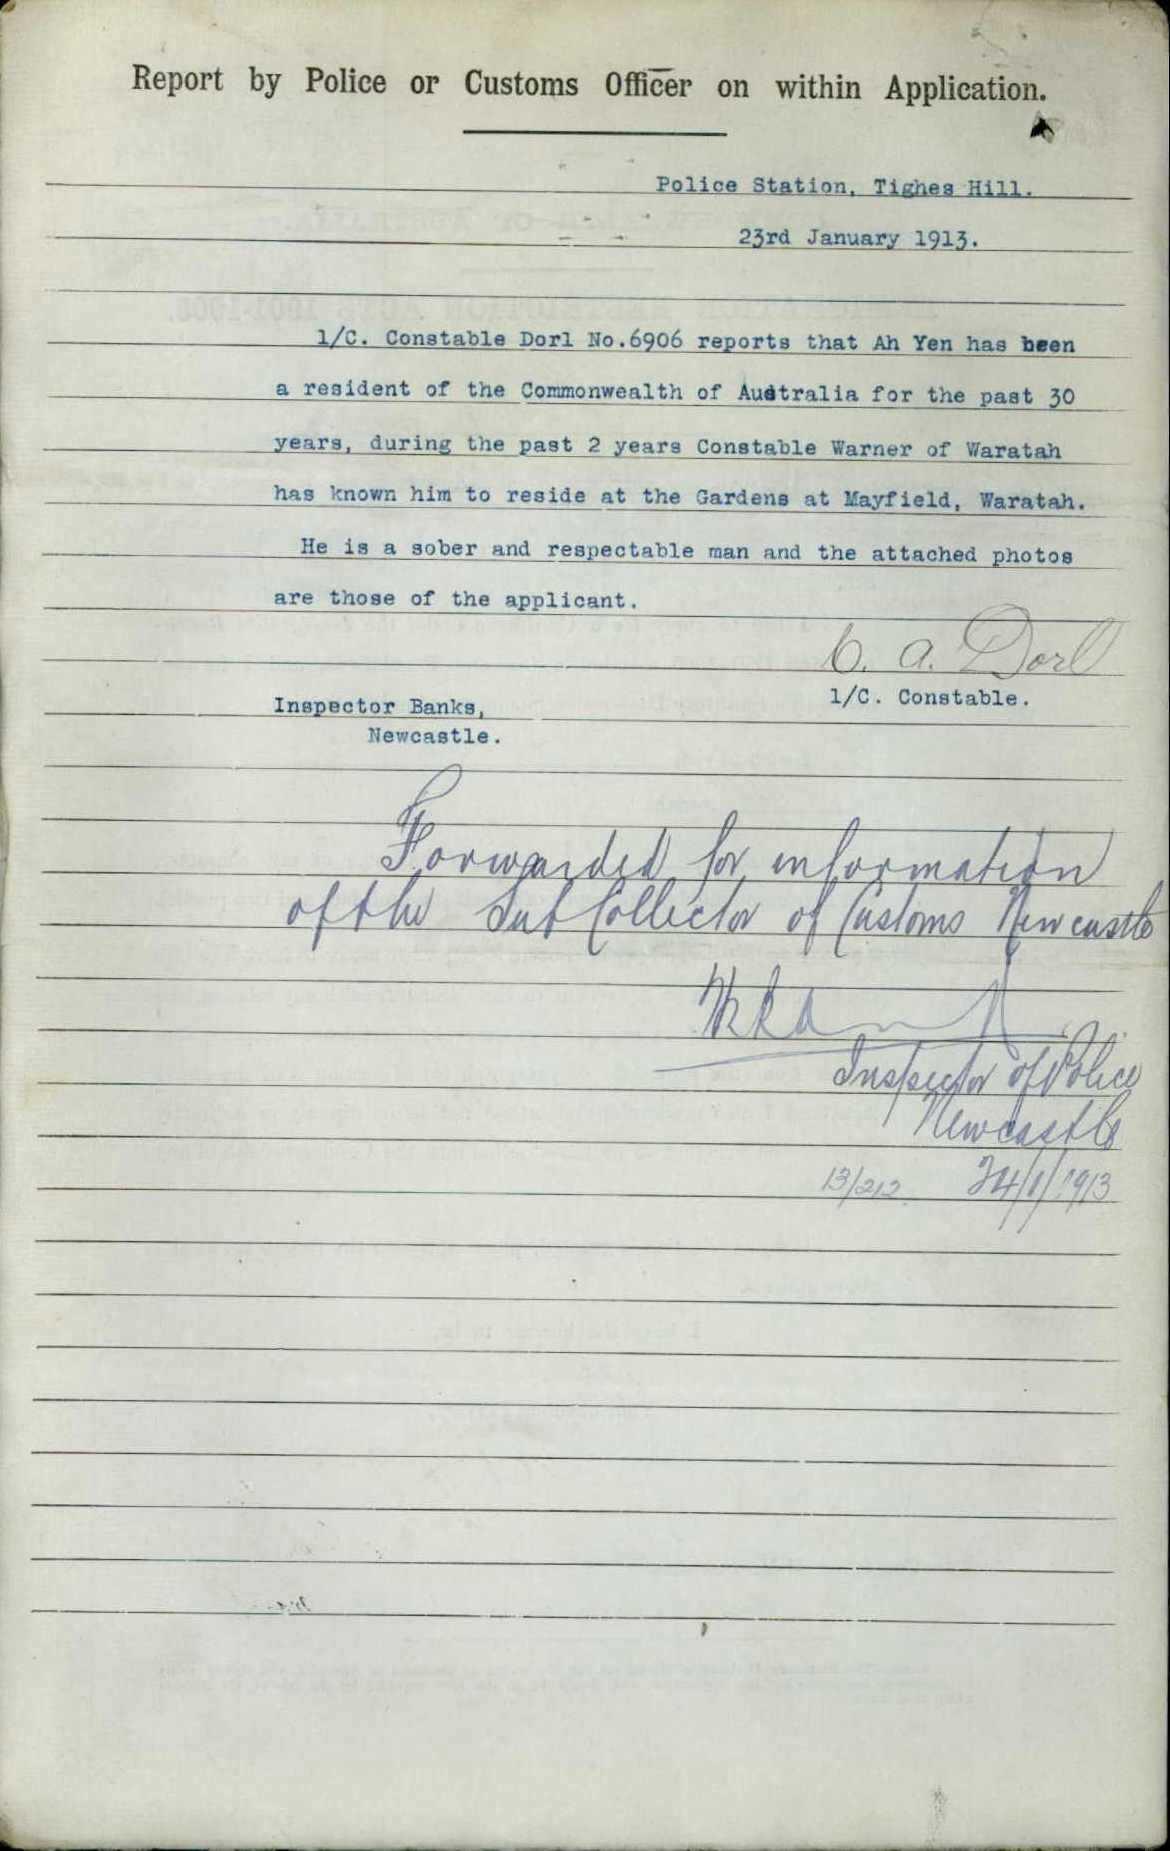 Report by Police or Customs Officer on within Application.
Police Station, Tighes Hill.
23rd January 1913.
1/C. Constable Dorl No.6906 reports that Ah Yen has been
a resident of the Commonwealth of Australia for the past 30
years, during the past 2 years Constable Warner of Waratah
has known him to reside at the Gardens at Mayfield, Waratah.
He is a sober and respectable man and the attached photos
are those of the applicant.
C. A. Dorl
1/C. Constable.
Inspector Banks,
Newcastle.
Forwarded for information
of the Sub Collector of Customs Newcastle
Inspector of Police
Newcastle
13/212 24/1/1913